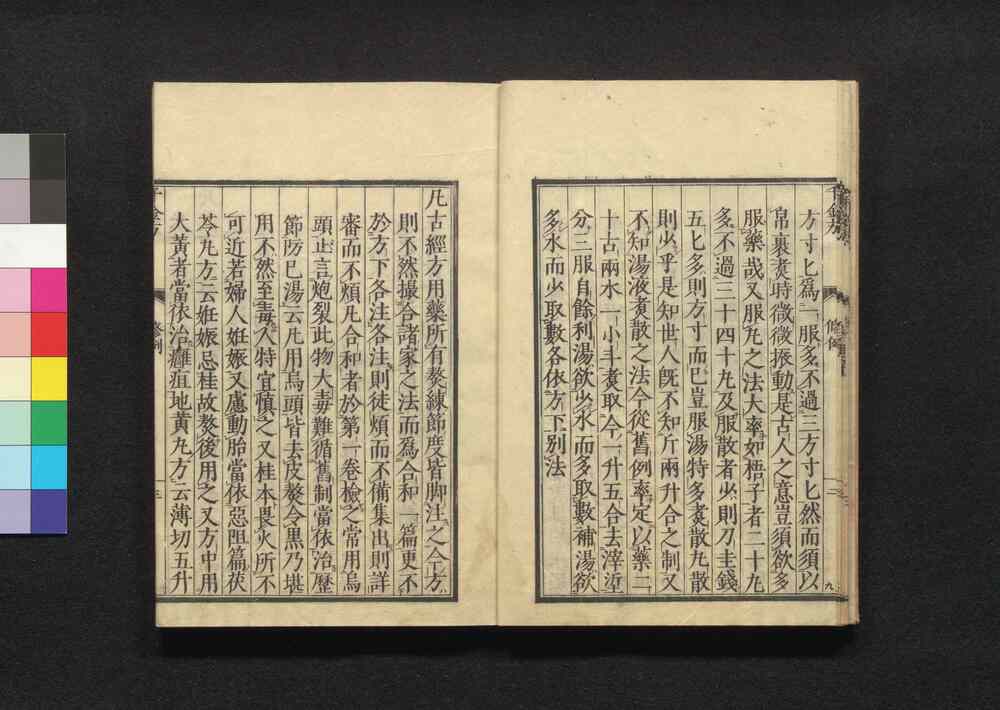 方寸匕爲一服多不過三方寸匕然而須以
帛裹煮時微微振動是古人之意豈須欲多
服藥哉又服丸之法大率如梧子者二十丸
多不過三十四十丸及服散者少則刀圭錢
五匕多則方寸而已豈服湯特多煮散丸散
則少乎是知世人旣不知斤兩升合之制又
不知湯液煮散之法今從舊例率定以藥二
十古兩水一小斗煮取今一升五合去滓垽
分三服自餘利湯欲少水而多取數補湯欲
多水而少取數各依方下别法
凡古經方用藥所有熬練節度皆脚注之今方
則不然撮合諸家之法而爲合和一篇更不
於方下各注各注則徒煩而不備集出則詳
審而不煩凡合和者於第一卷檢之常用烏
頭止言炮裂此物大毒難循舊制當依治歷
節防巳湯云凡用烏頭皆去皮熬令黑乃堪
用不然至毒人特宜慎之又桂本畏火所不
可近若婦人妊娠又慮動胎當依惡阻篇茯
苓丸方云妊娠忌桂故熬後用之又方中用
大黃者當依治癰疽地黃丸方云薄切五升